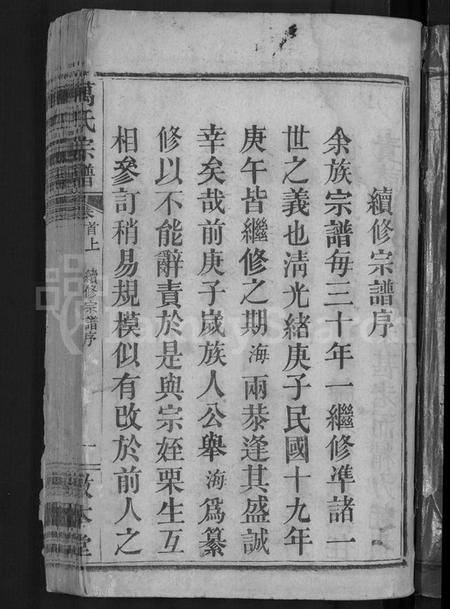 續修宗譜序
余族宗譜每三十年一繼修準諸一
世之義也淸光緒庚子民國十九年
庚午皆繼修之期海兩恭逢其盛誠
幸矣哉前庚子歲族人公舉海爲纂
修以不能辭責於是與宗姪栗生互
相參訂稍易規模似有改於前人之
萬氏宗譜 卷首上 續修宗譜序 一 敦本堂